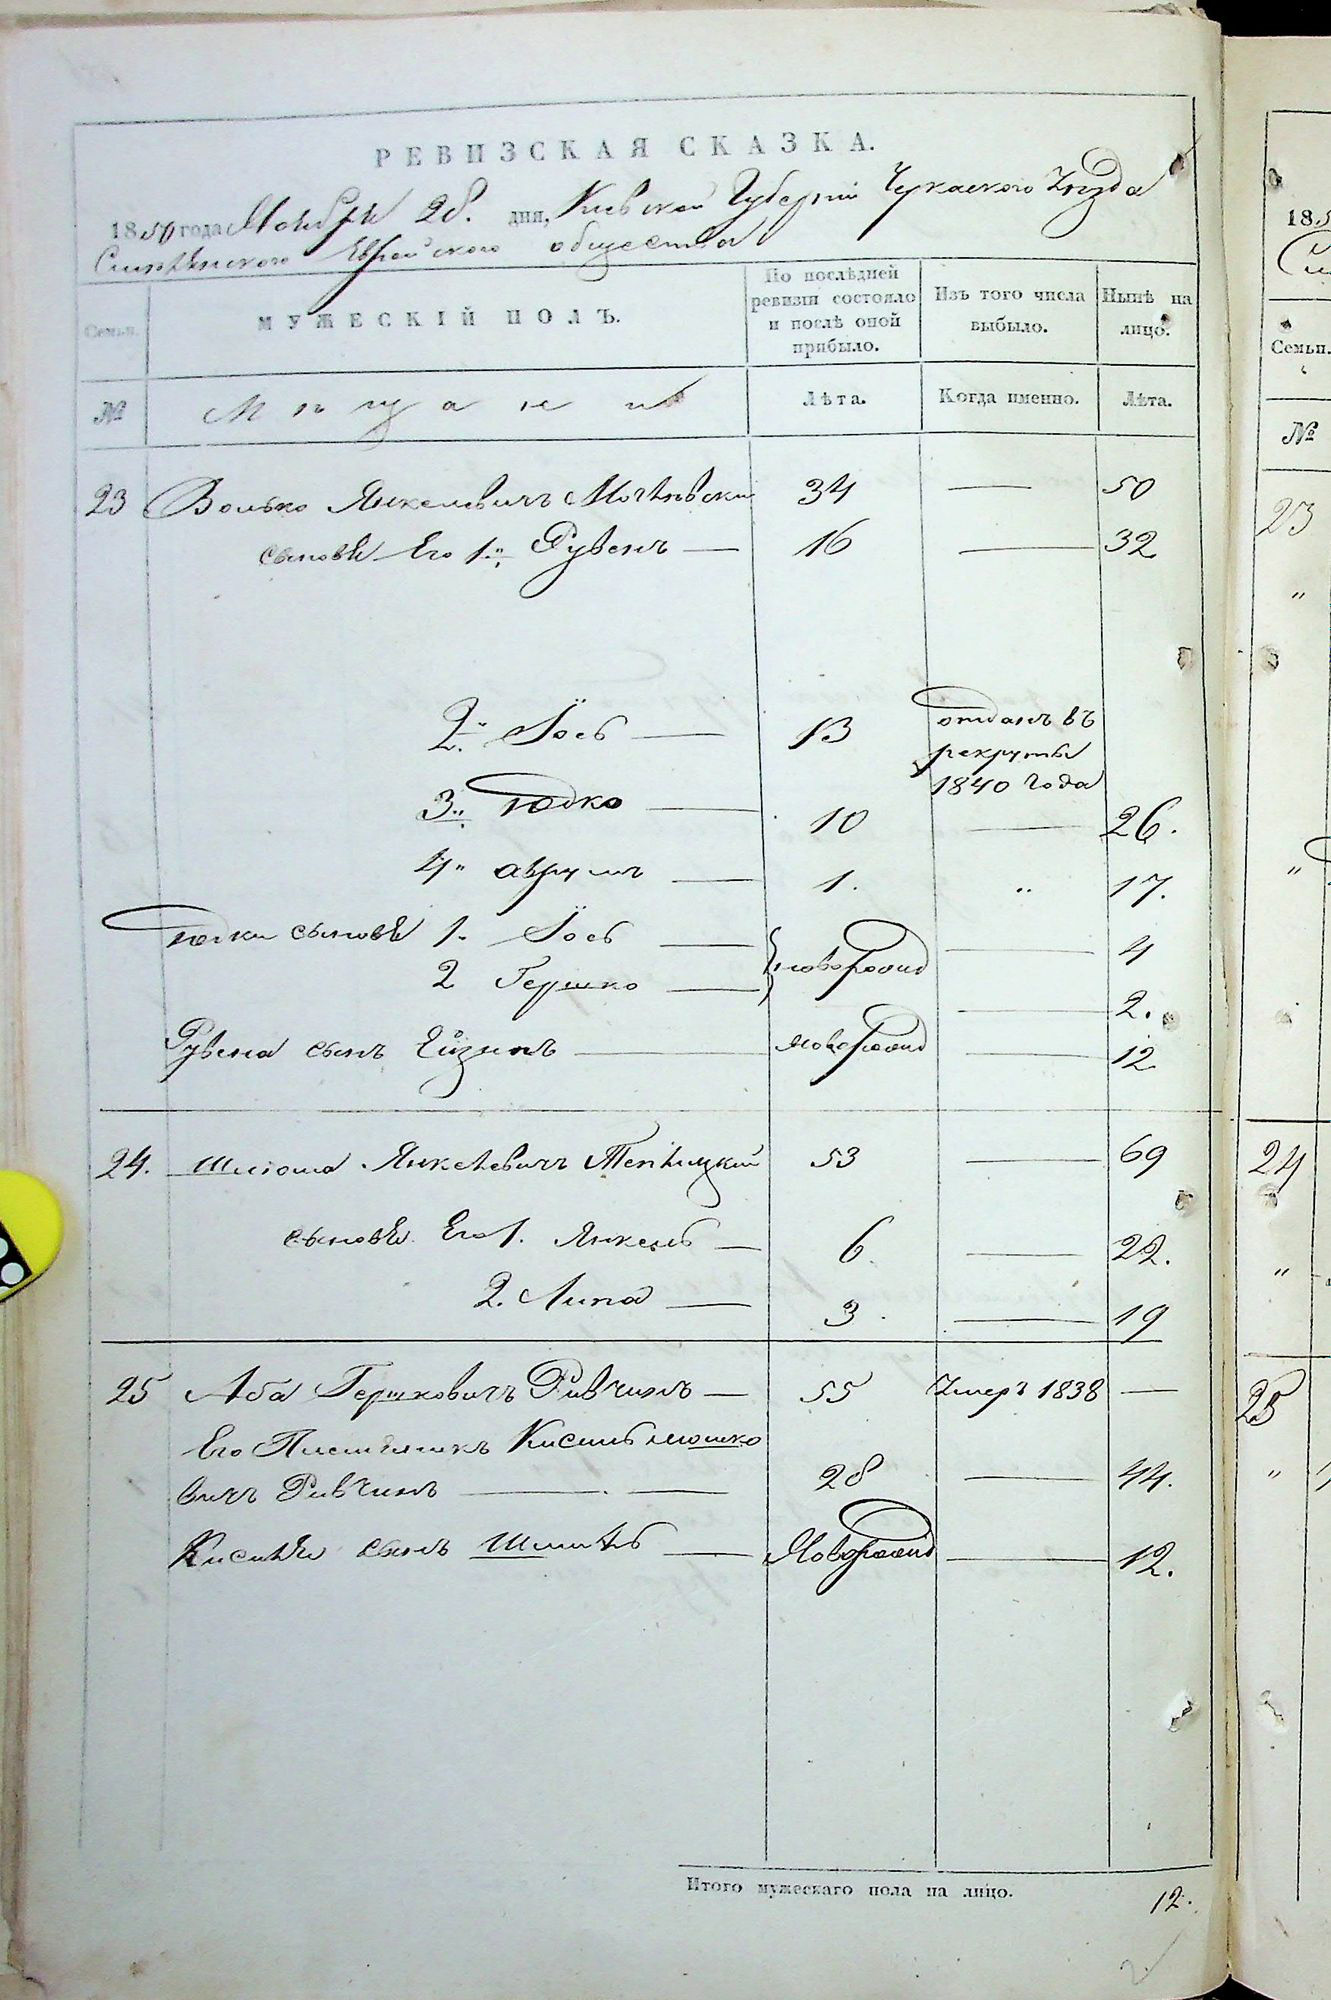 РЕВИЗСКАЯ СКАЗКА.
1850 года Ноября 28. дня, Киевской Губерніи Черкаского Уезда
Смилянского Еврейского общества
Семьи.
МУЖЕСКІЙ ПОЛЪ.
По послѣдней ревизіи состояло и послѣ оной прибыло.
Изъ того числа выбыло.
Нынѣ на лицо.
№
Мѣщане
Лѣта.
Когда именно.
Лѣта.
23 Волько Янкелевичъ 34 — 50
сыновья Его 1й Рувенъ — 16 — 32
2й Іось — 13 отданъ въ рекруты 1840 года
3й Юдко — 10 — 26.
4й Аврумъ — 1. " 17.
Юдки сыновья 1. Іось — новорожд — 4
2 Гершко — — 2.
Рувена сынъ Ейзикъ — новорожд — 12
24. Шлиома Янкелевичъ 53 — 69
сыновья Его 1. Янкель — 6. — 22.
2. Липа — 3. — 19
25 Аба Гершковичъ Ривчинъ — 55 Умеръ 1838 —
Его Племянникъ Кисиль Мошко
вичъ Ривчинъ — 28 — 44.
сынъ — Новорожд — 12.
Итого мужескаго пола на лицо. 12.
18
Семьи.
№
23
"
"
24
"
25
"